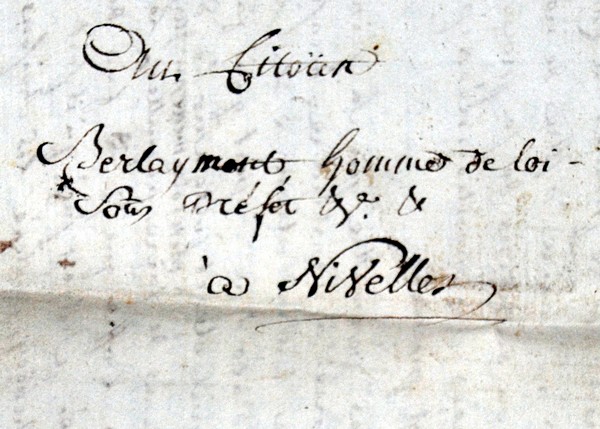 Au Citoïen
Berlaymont, homme de loi -
Sous Préfet &c. &
à Nivelles